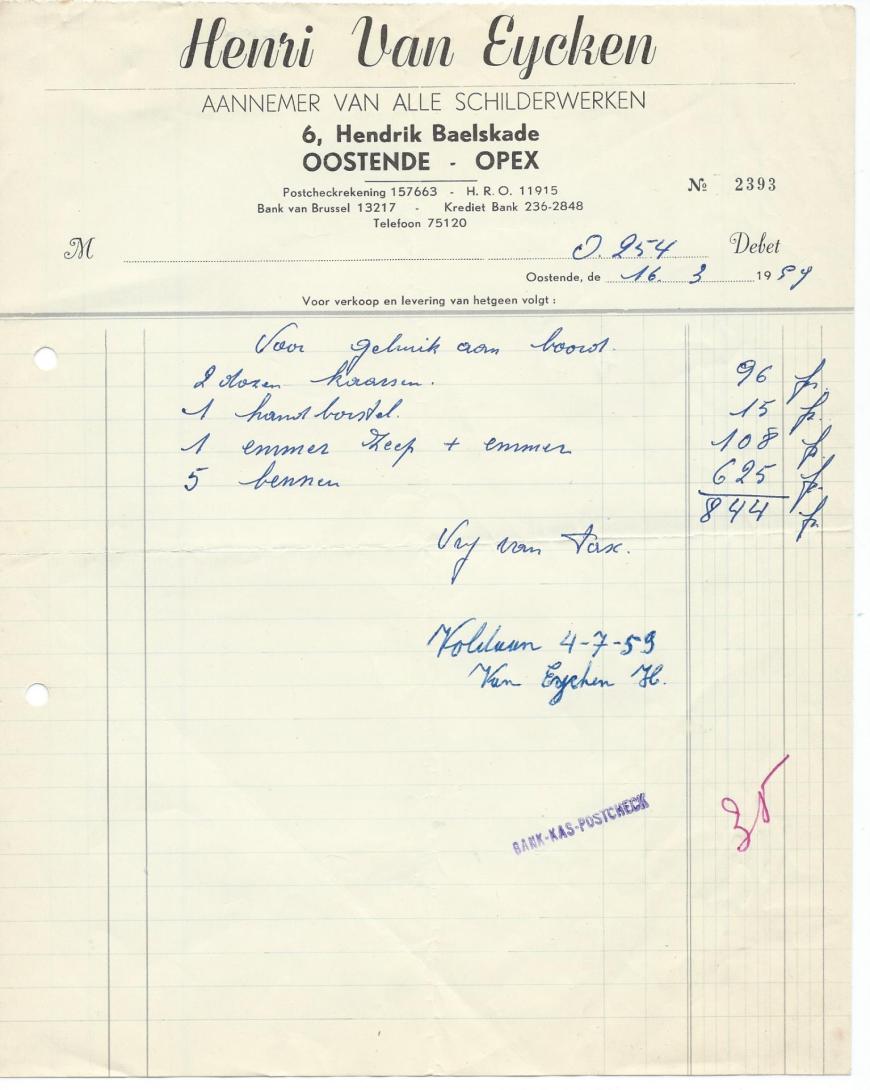 Henri Van Eycken
AANNEMER VAN ALLE SCHILDERWERKEN
6, Hendrik Baelskade
OOSTENDE - OPEX
Postcheckrekening 157663 - H. R. O. 11915
Bank van Brussel 13217 - Krediet Bank 236-2848
Telefoon 75120
№ 2393
M O. 254 Debet
Oostende, de 16. 3 1959
Voor verkoop en levering van hetgeen volgt :
Voor gebruik aan boord.
2 dozen kaarsen. 96 fr.
1 handborstel. 15 fr.
1 emmer zeep + emmer 108 fr.
5 bennen 625 fr.
844 fr.
Vry van tax.
Voldaan 4-7-59
Van Eycken H.
BANK-KAS-POSTCHECK